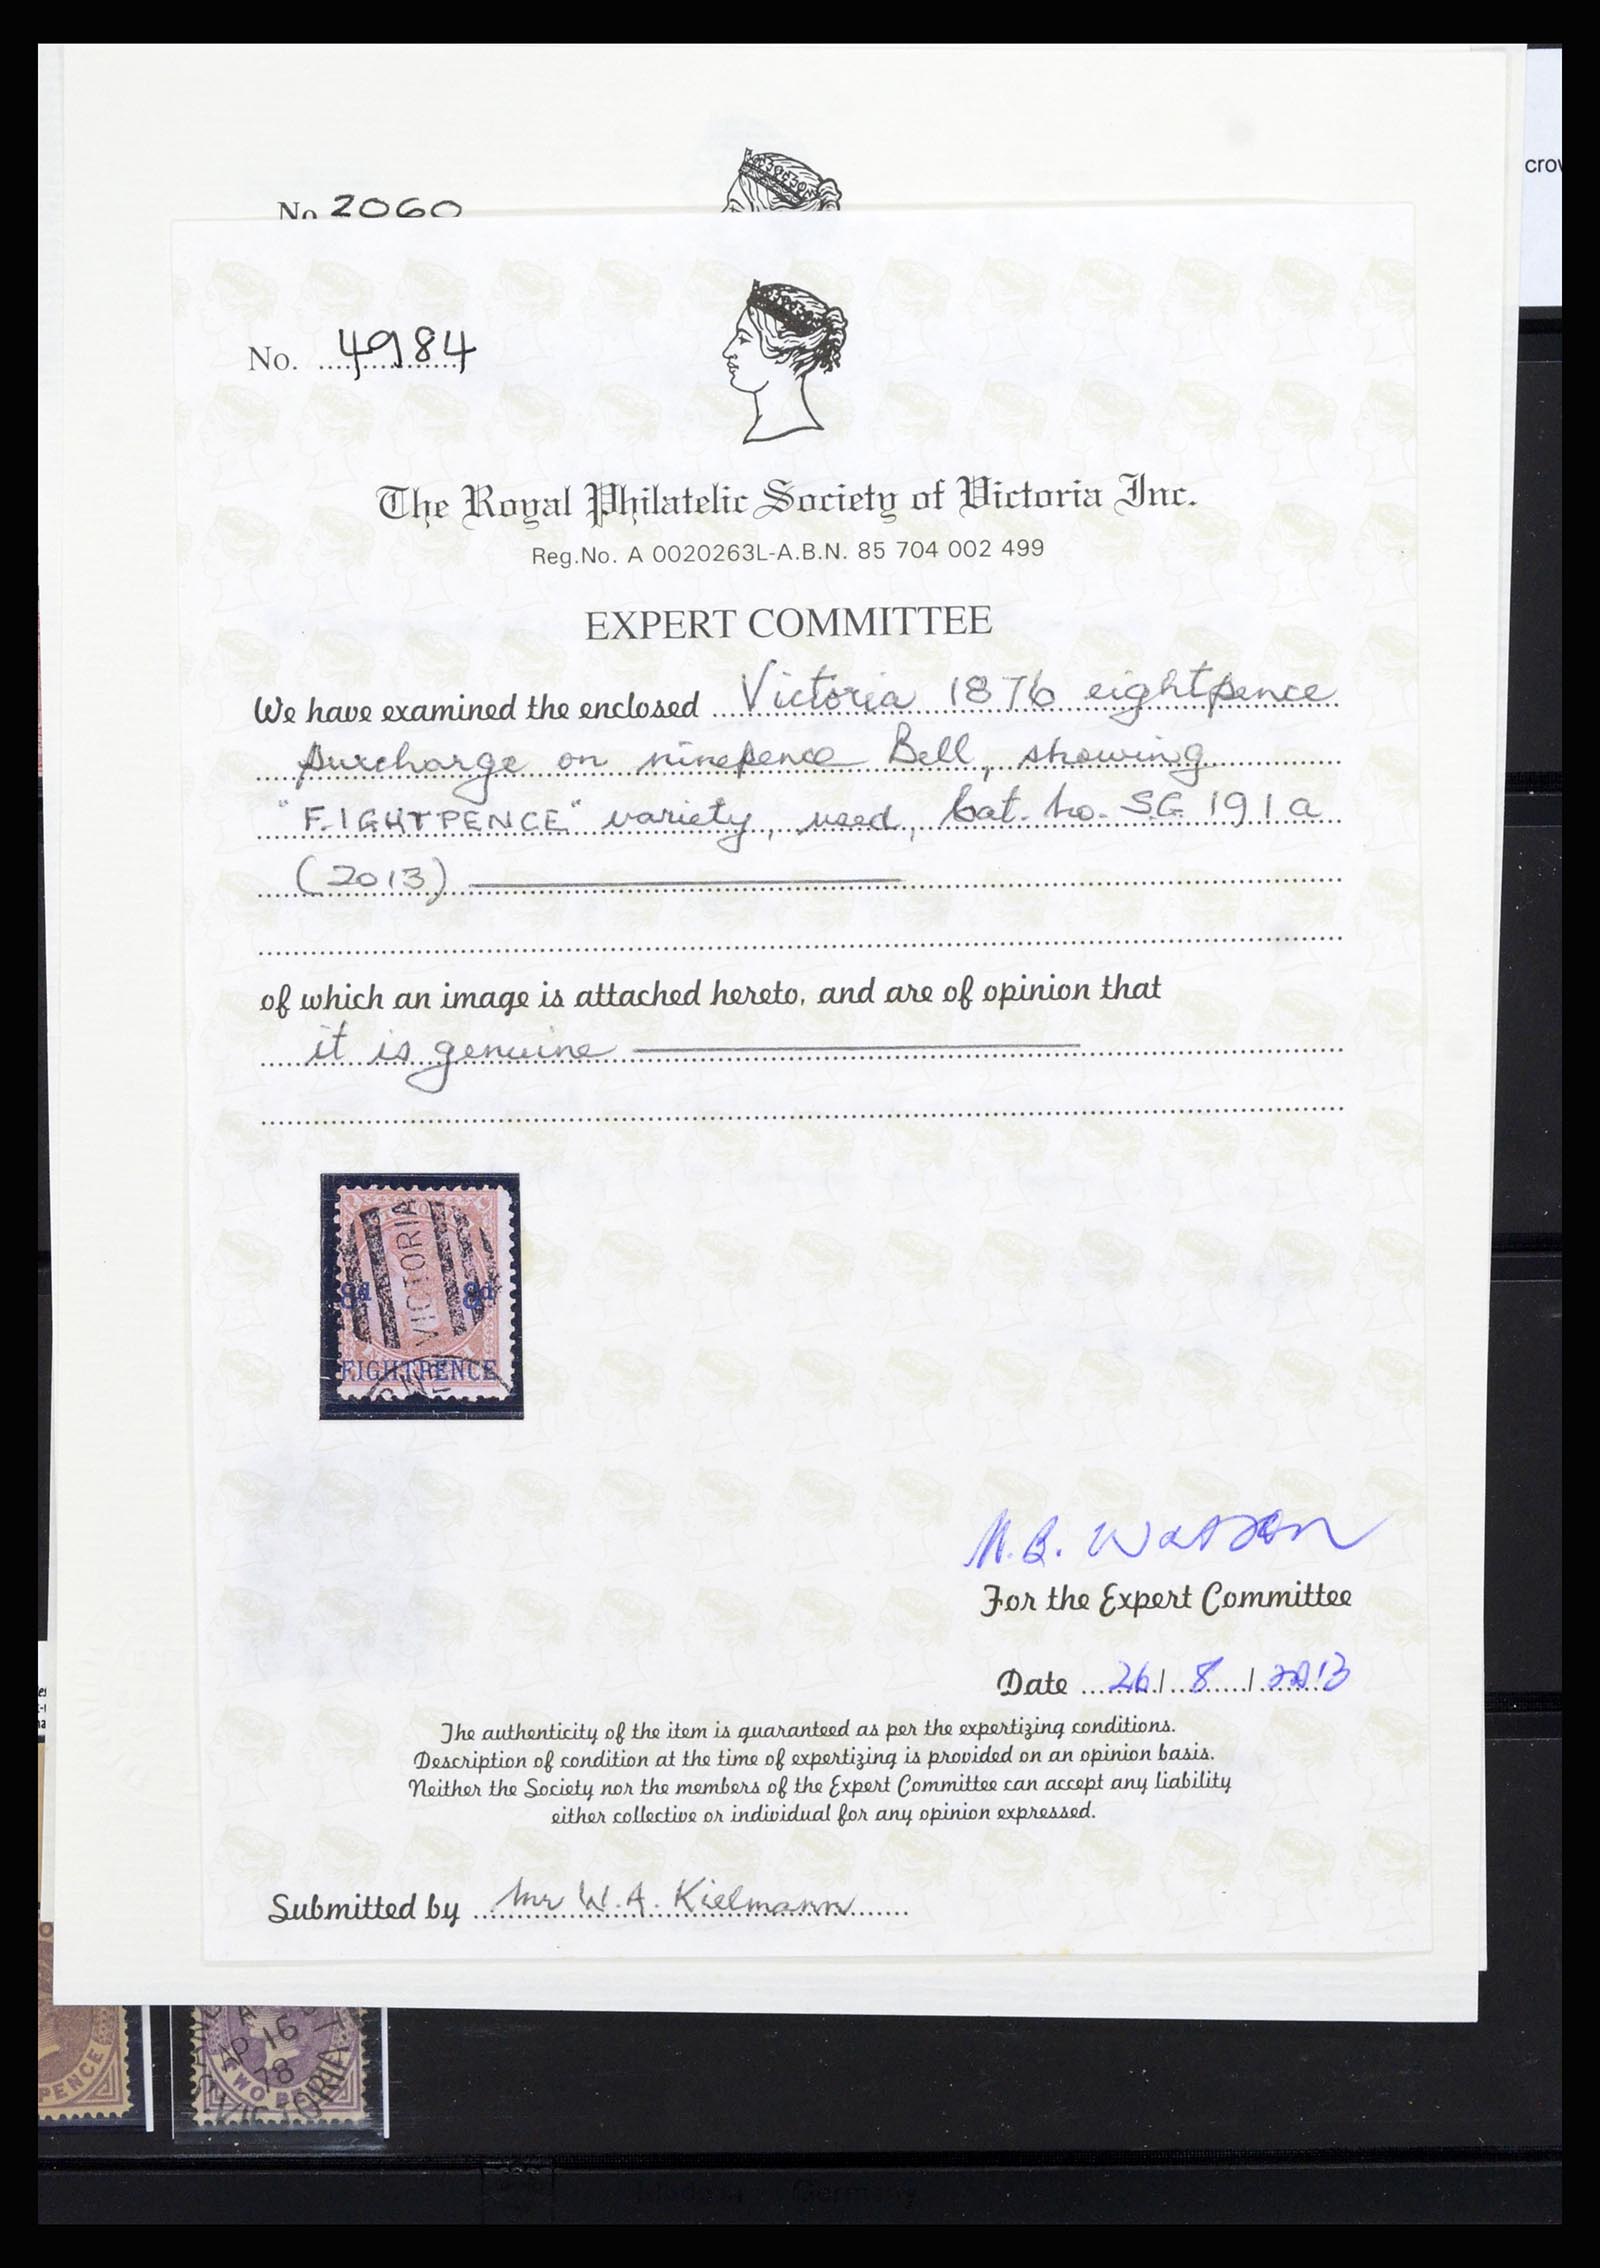 No 2060
crov
No. 4984
The Royal Philatelic Society of Victoria Inc.
Reg.No. A 0020263L-A.B.N. 85 704 002 499
EXPERT COMMITTEE
We have examined the enclosed Victoria 1876 eightpence
surcharge on ninepence Bell, showing
"F.IGHTPENCE" variety, used, Cat. No. SG 191a
(2013)
of which an image is attached hereto, and are of opinion that
it is genuine
VICTORIA
8d 8d
FIGHTPENCE
N. B. Watson
For the Expert Committee
Date 26/8/2013
The authenticity of the item is guaranteed as per the expertizing conditions.
Description of condition at the time of expertizing is provided on an opinion basis.
Neither the Society nor the members of the Expert Committee can accept any liability
either collective or individual for any opinion expressed.
Submitted by Mr W. A. Kielmann
PENCE
A
AP 16
78
TWO PE
VICTORIA
Made in Germany